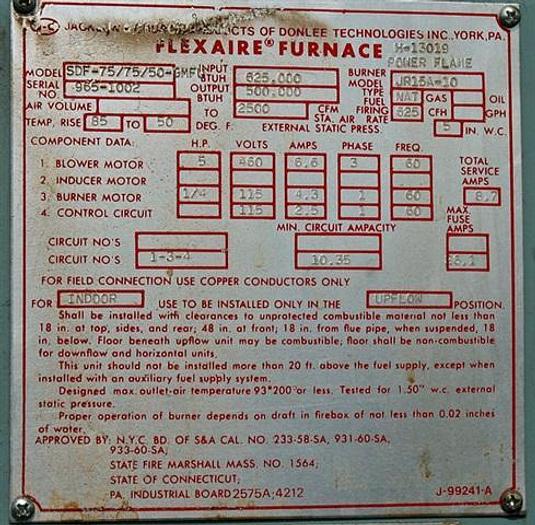 J-C JACKSON & CHURCH PRODUCTS OF DONLEE TECHNOLOGIES INC., YORK, PA.
FLEXAIRE® FURNACE H-13019
MODEL SDF-75/75/50-GMFU INPUT BTUH 625,000 BURNER MODEL POWER FLAME JR15A-10
SERIAL NO. 965-1002 OUTPUT BTUH 500,000 TYPE FUEL NAT GAS OIL
AIR VOLUME TO 2500 CFM STA. AIR FIRING RATE 625 CFH GPH
TEMP, RISE 85 TO 50 DEG. F. EXTERNAL STATIC PRESS. .5 IN. W.C.
COMPONENT DATA: H.P. VOLTS AMPS PHASE FREQ.
1. BLOWER MOTOR 5 460 6.6 3 60 TOTAL SERVICE AMPS
2. INDUCER MOTOR
3. BURNER MOTOR 1/4 115 4.3 1 60 8.7
4. CONTROL CIRCUIT 115 2.5 1 60 MAX. FUSE AMPS
MIN. CIRCUIT AMPACITY
CIRCUIT NO'S
CIRCUIT NO'S 1-3-4 10.35
FOR FIELD CONNECTION USE COPPER CONDUCTORS ONLY
FOR INDOOR USE TO BE INSTALLED ONLY IN THE UPFLOW POSITION.
Shall be installed with clearances to unprotected combustible material not less than
18 in. at top, sides, and rear; 48 in. at front; 18 in. from flue pipe, when suspended, 18
in. below. Floor beneath upflow unit may be combustible; floor shall be non-combustible
for downflow and horizontal units.
This unit should not be installed more than 20 ft. above the fuel supply, except when
installed with an auxiliary fuel supply system.
Designed max. outlet-air temperature 93°200° or less. Tested for 1.50" w.c. external
static pressure.
Proper operation of burner depends on draft in firebox of not less than 0.02 inches
of water.
APPROVED BY: N.Y.C. BD. OF S&A CAL. NO. 233-58-SA, 931-60-SA,
933-60-SA;
STATE FIRE MARSHALL MASS. NO. 1564;
STATE OF CONNECTICUT;
PA. INDUSTRIAL BOARD 2575A; 4212 J-99241-A